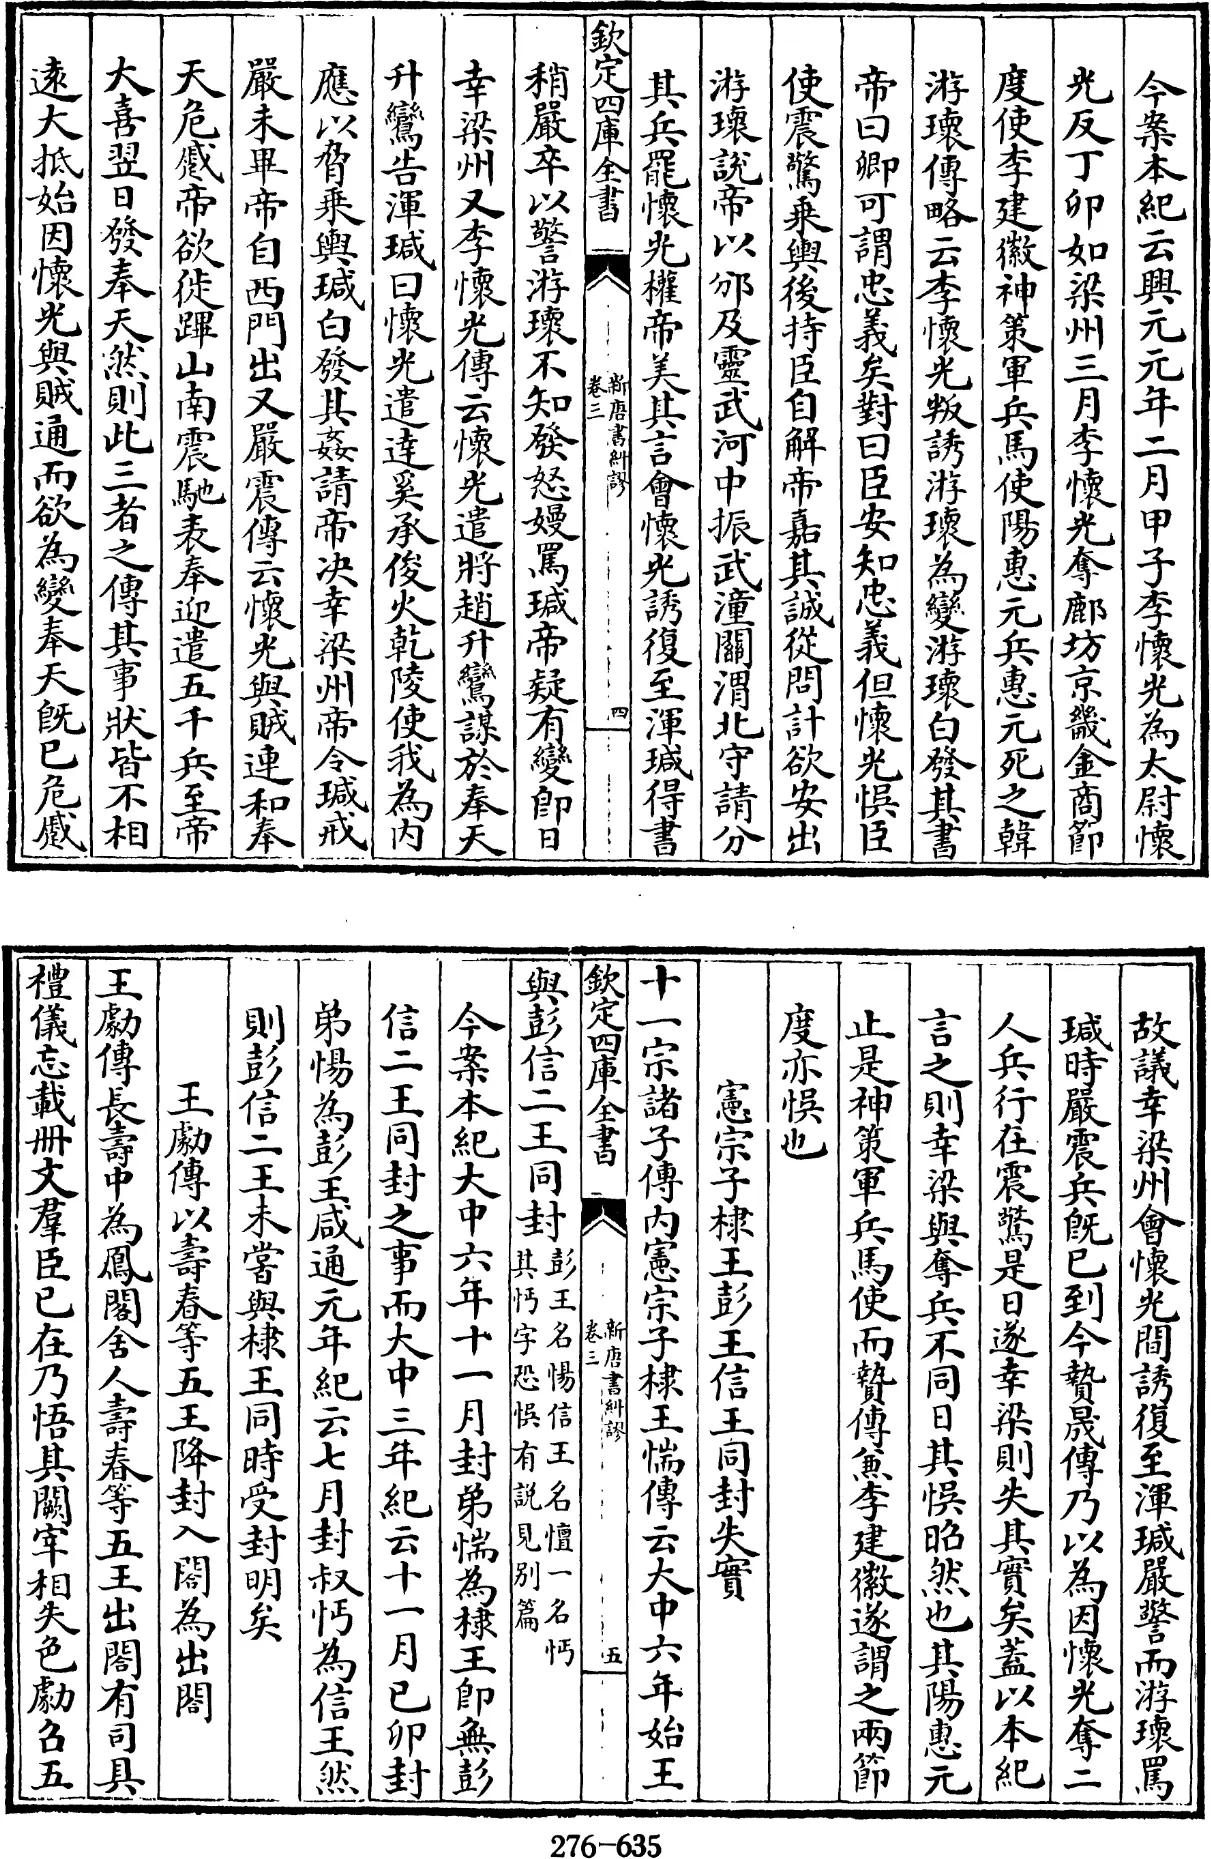 今案本紀云興元元年二月甲子李懷光為太尉懷
光反丁卯如梁州三月李懷光奪鄜坊京畿金商節
度使李建徽神策軍兵馬使陽惠元兵惠元死之韓
游瓌傳略云李懷光叛誘游瓌為變游瓌白發其書
帝曰卿可謂忠義矣對曰臣安知忠義但懷光悞臣
使震驚乘輿後持臣自解帝嘉其誠從問計欲安出
游瓌說帝以邠及靈武河中振武潼關渭北守請分
其兵罷懷光權帝美其言會懷光誘復至渾瑊得書
欽定四庫全書
新唐書糾謬
卷三
四
稍嚴卒以警游瓌不知發怒嫚罵瑊帝疑有變即日
幸梁州又李懷光傳云懷光遣將趙升鸞謀於奉天
升鸞告渾瑊曰懷光遣逹奚承俊火乾陵使我為内
應以脅乘輿瑊白發其姦請帝決幸梁州帝令瑊戒
嚴未畢帝自西門出又嚴震傳云懷光與賊連和奉
天危蹙帝欲徙蹕山南震馳表奉迎遣五千兵至帝
大喜翌日發奉天然則此三者之傳其事狀皆不相
逺大抵始因懷光與賊通而欲為變奉天既已危蹙
故議幸梁州會懷光間誘復至渾瑊嚴警而游瓌罵
瑊時嚴震兵既已到今贄晟傳乃以為因懷光奪二
人兵行在震驚是日遂幸梁則失其實矣蓋以本紀
言之則幸梁與奪兵不同日其悞昭然也其陽惠元
止是神策軍兵馬使而贄傳兼李建徽遂謂之兩節
度亦悞也
憲宗子棣王彭王信王同封失實
十一宗諸子傳内憲宗子棣王惴傳云大中六年始王
欽定四庫全書
新唐書糾謬
卷三
五
與彭信二王同封彭王名惕信王名憻一名㤝
其㤝字恐悞有說見别篇
今案本紀大中六年十一月封弟惴為棣王即無彭
信二王同封之事而大中三年紀云十一月已卯封
弟惕為彭王咸通元年紀云七月封叔㤝為信王然
則彭信二王未嘗與棣王同時受封明矣
王勮傳以壽春等五王降封入閤為出閤
王勮傳長壽中為鳳閣舍人壽春等五王出閤有司具
禮儀忘載冊文羣臣已在乃悟其闕宰相失色勮召五
276-635